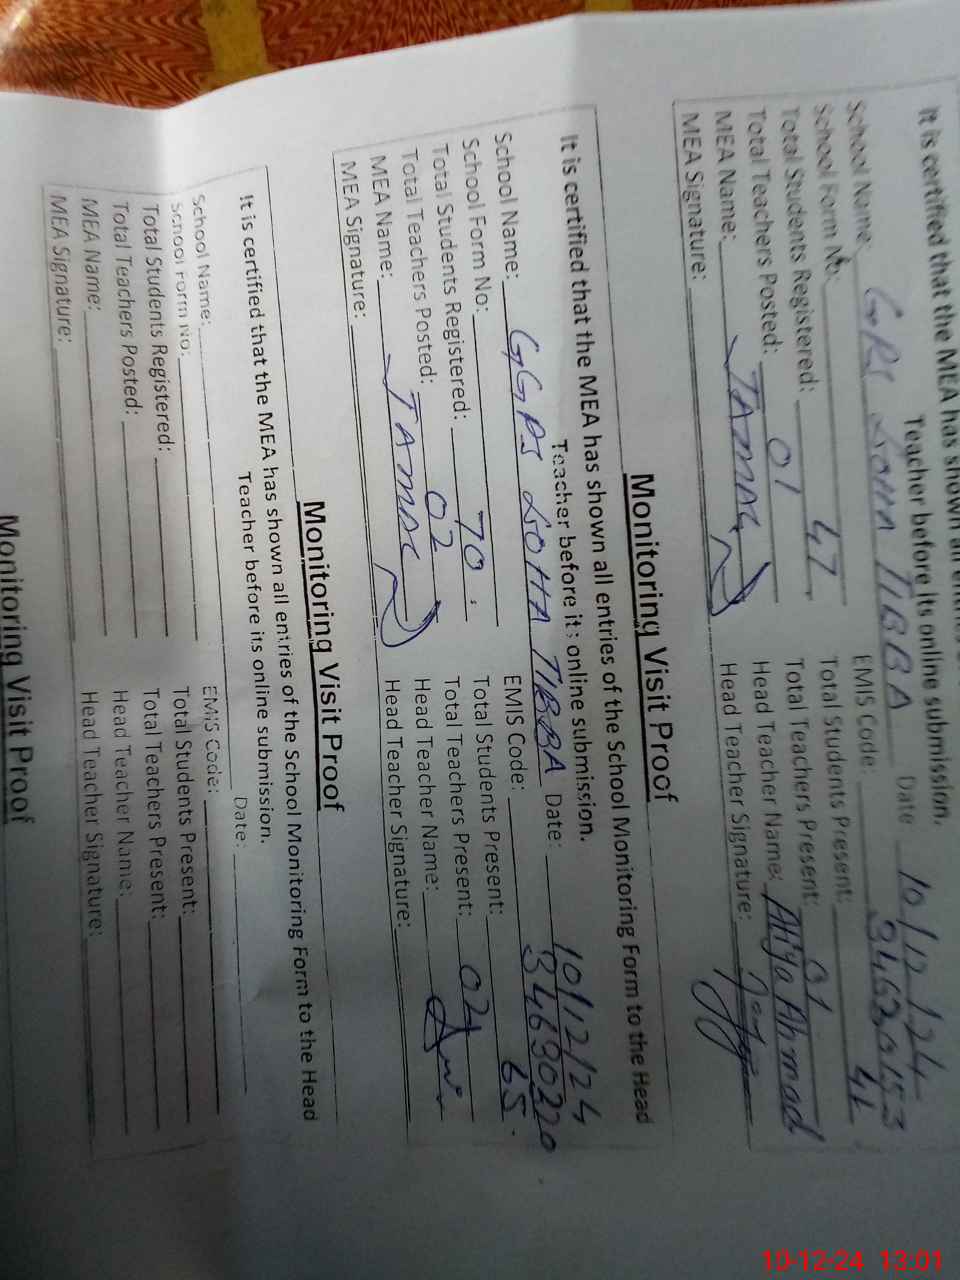 It is certified that the MEA has shown all entries
Teacher before its online submission.
School Name: GPS SOHA TIBBA Date 10/12/24
School Form No: EMIS Code:
Total Students Registered: 47 Total Students Present: 41
Total Teachers Posted: 01 Total Teachers Present: 01
MEA Name: Head Teacher Name: Ahmad
MEA Signature: Head Teacher Signature:
Monitoring Visit Proof
It is certified that the MEA has shown all entries of the School Monitoring Form to the Head
Teacher before its online submission.
School Name: GGPS SOHA TIBBA Date: 10/12/24
School Form No: EMIS Code: 34630220
Total Students Registered: 70 Total Students Present: 65
Total Teachers Posted: 02 Total Teachers Present: 02
MEA Name: Head Teacher Name:
MEA Signature: Head Teacher Signature:
Monitoring Visit Proof
It is certified that the MEA has shown all entries of the School Monitoring Form to the Head
Teacher before its online submission.
School Name: Date:
School Form No: EMIS Code:
Total Students Registered: Total Students Present:
Total Teachers Posted: Total Teachers Present:
MEA Name: Head Teacher Name:
MEA Signature: Head Teacher Signature:
Monitoring Visit Proof
10-12-24 13:01